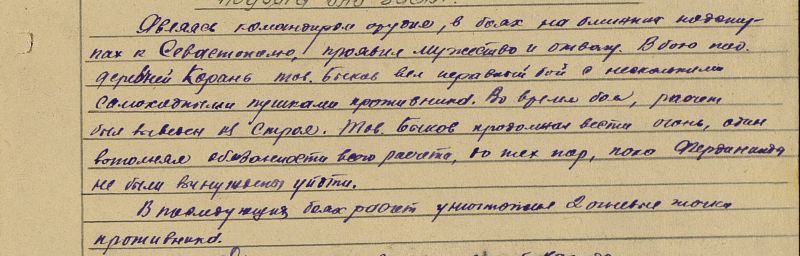 Являясь командиром орудия, в боях на ближних подсту-
пах к Севастополю, проявил мужество и отвагу. В бою под
деревней Карань тов. Быков вел неравный бой с несколькими
самоходными пушками противника. Во время боя, расчет
был выведен из строя. Тов. Быков продолжал вести огонь, один
выполняя обязанности всего расчета, до тех пор, пока Фердинанды
не были вынуждены уйти.
В последующих боях расчет уничтожил 2 огневые точки
противника.